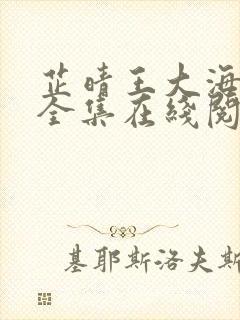 芷晴王大海
全集在线阅
基耶斯洛夫斯